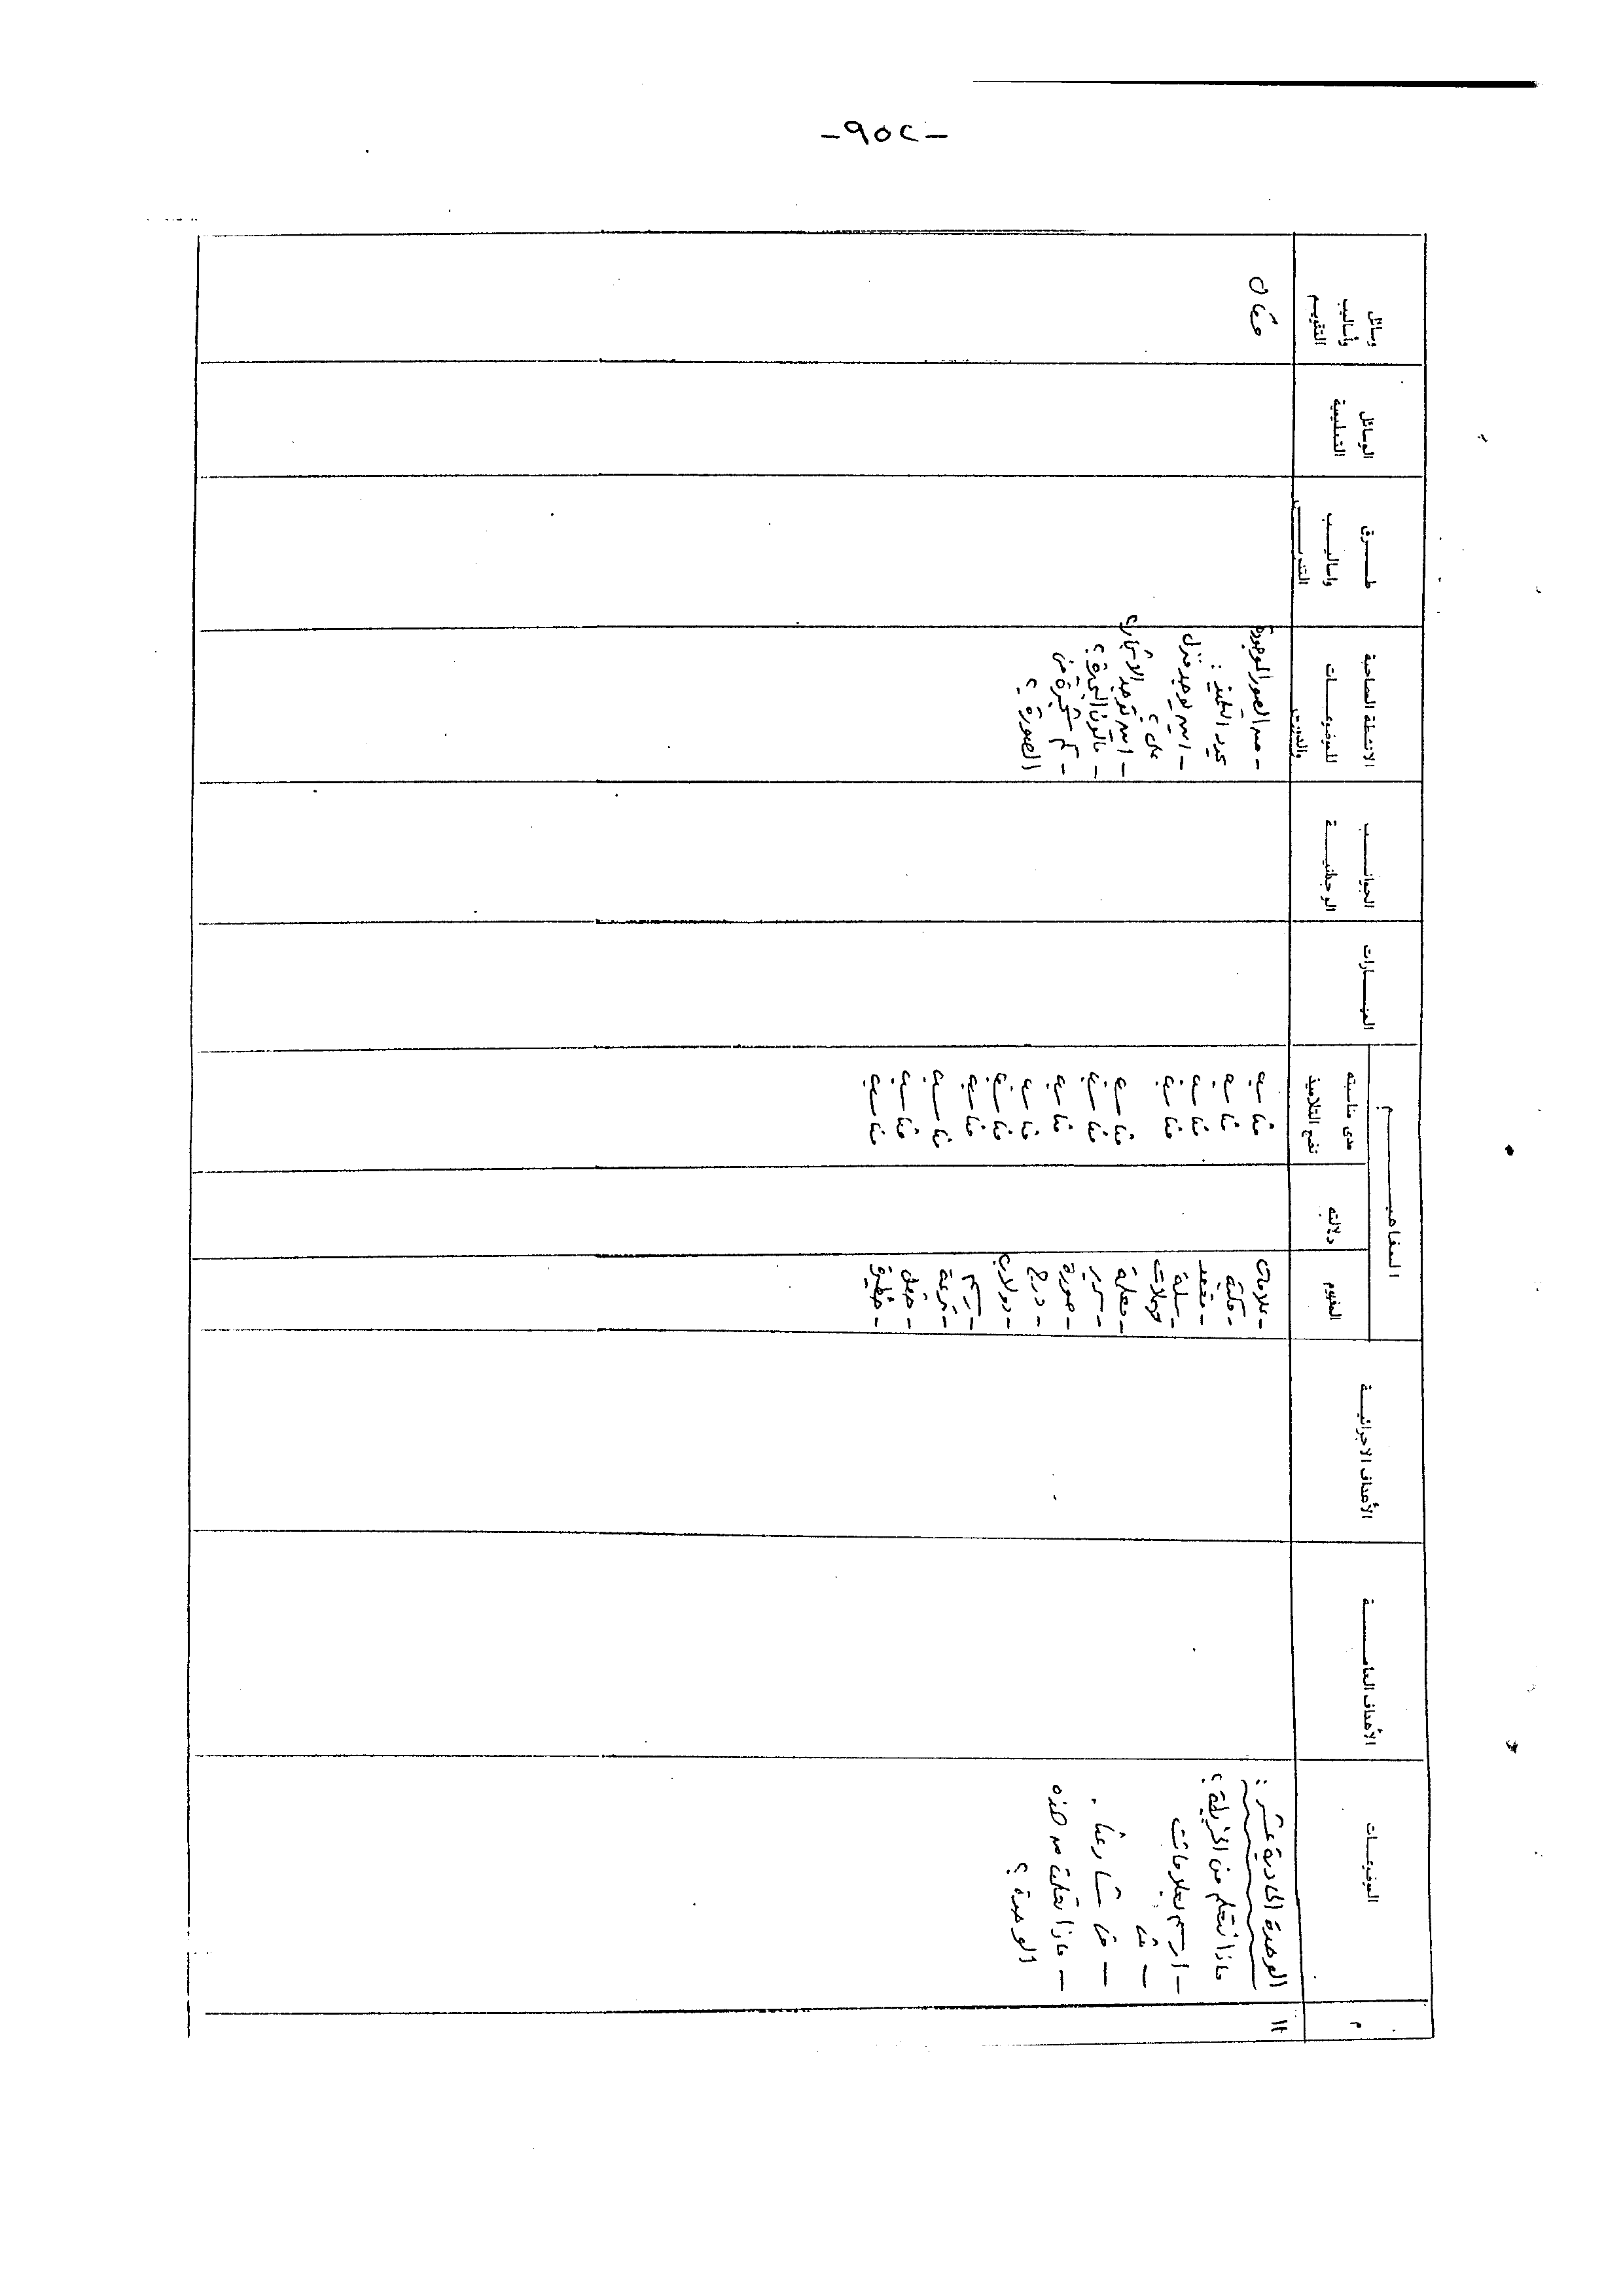 -٩٥٢-
م
الموضوعات
الأهداف العامة
الأهداف الاجرائية
المفاهيم
المفهوم
دلالته
مدى مناسبته
نضج التلاميذ
المهارات
الجوانب
الوجدانية
الانشطة المصاحبة
للموضوعات
والدروس
طرق
واساليب
التدريس
الوسائل
التعليمية
وسائل
وأساليب
التقويم
١٢
الوحدة الحادية عشر :
ماذا نتعلم من الخريطة ؟
- ارسم بعلامات
- في شارعنا .
- ماذا تعلمت من هذه
الوحدة ؟
- علامات
- مكتبة
- مقعد
- سلة
مهملات
- مغسلة
- سرير
- صورة
- درج
- دولاب
- رسم
- غرفة
- حقل
- تخطيط
مناسب
مناسب
مناسب
مناسب
مناسب
مناسب
مناسب
مناسب
مناسب
مناسب
مناسب
مناسب
مناسب
- من الصور الموجودة
يحدد التلميذ :
- اين يوجد منزل
علي ؟
- اين توجد الأشجار ؟
- ما لون الشجرة ؟
- كم شجرة في
الصورة ؟
مقال